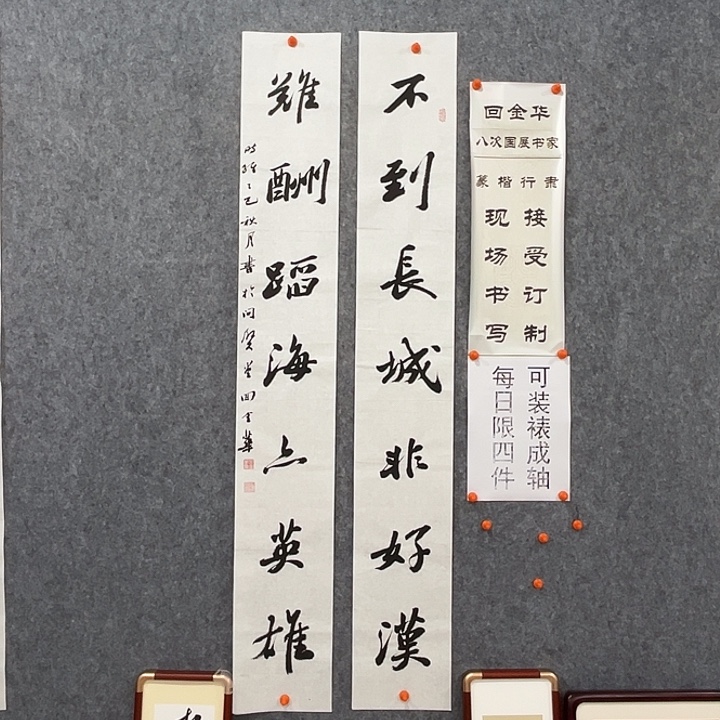 回金华
八次国展书家
篆楷行隶
接受订制
现场书写
可装裱成轴
每日限四件
不到長城非好漢
難酬蹈海亦英雄
时維乙巳秋月書於问賢堂回金華